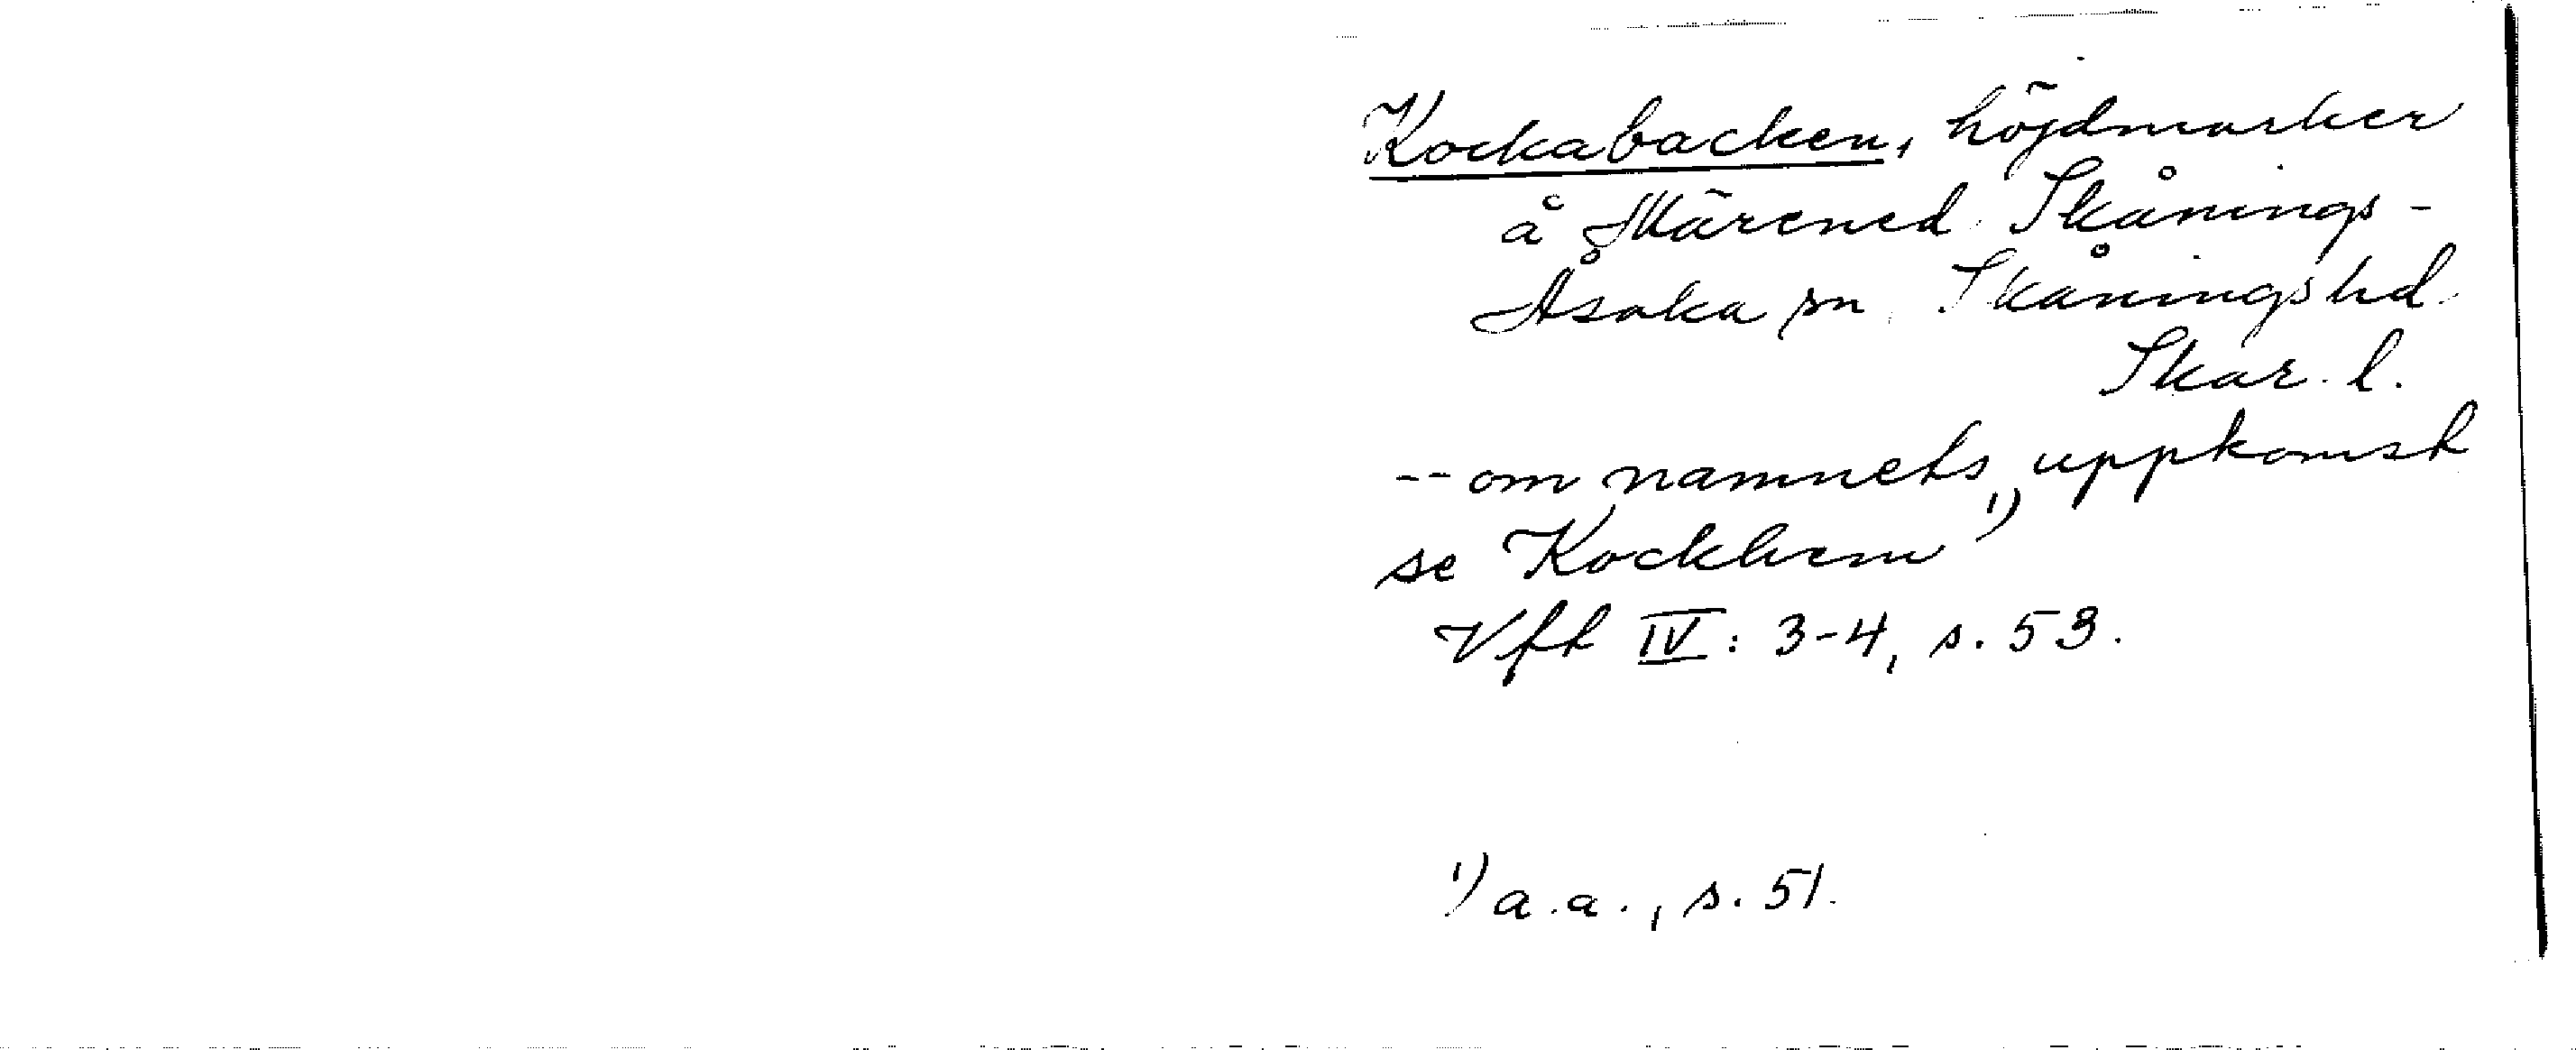 Kockabacken, höjdmarker
å Härened. Skånings-
Åsaka sn, Skånings hd.
Skar. l.
-- om namnets uppkomst
se Kockhem 1)
Vft IV: 3-4, s. 53.
1) a.a., s. 51.